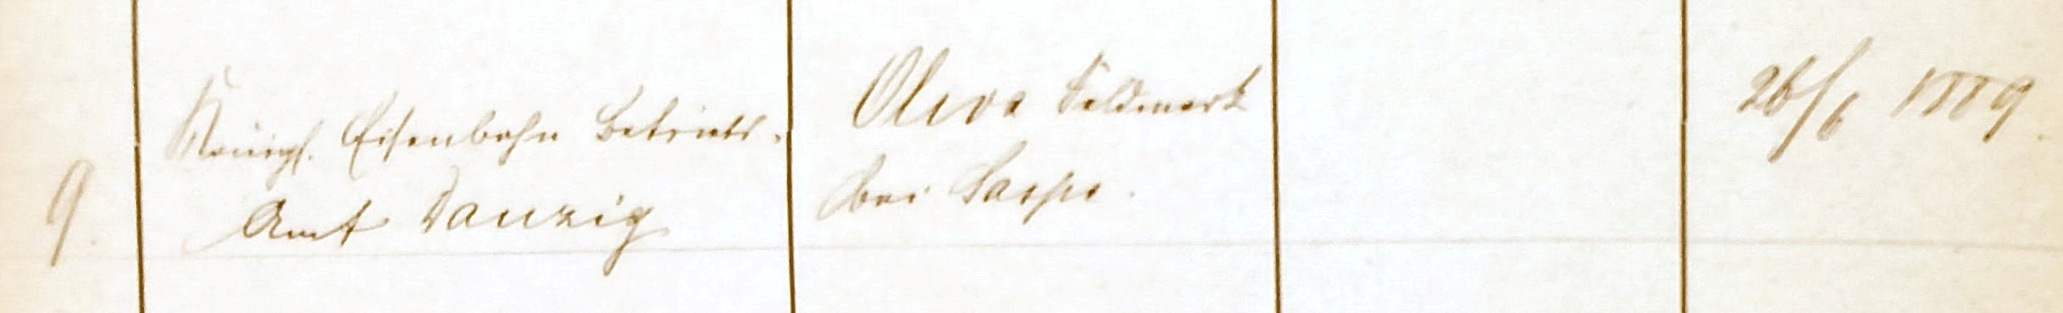 9.
Königl. Eisenbahn Betriebs-
Amt Danzig
Oliva Feldmark
bei Saspe.
26/6 1889.